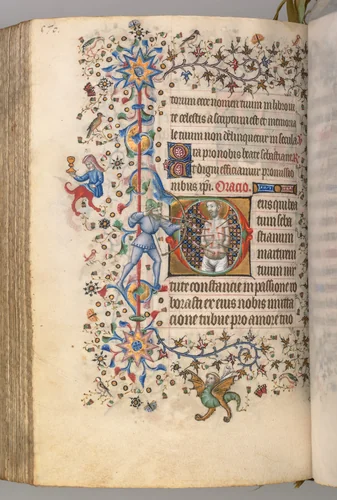 torum ecce nomen tuum in libro vi
te celestis ascriptum est et memoria
le tuum non delinquetur in secula. V
Ora pro nobis beate sebastiane. R
Ut digni efficiamur promissio
nibus xpi. Oratio.
Deus qui bea
tum seba
stianum
martirem
tuum vir
tute constancie in passione ro
borasti ex eius nobis imita
cione tribue pro amore tuo